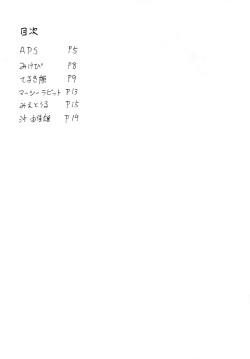 目次
APS P5
みけぴ P8
てるき熊 P9
マーシーラビット P13
みえとうる P15
沖 由佳雄 P19